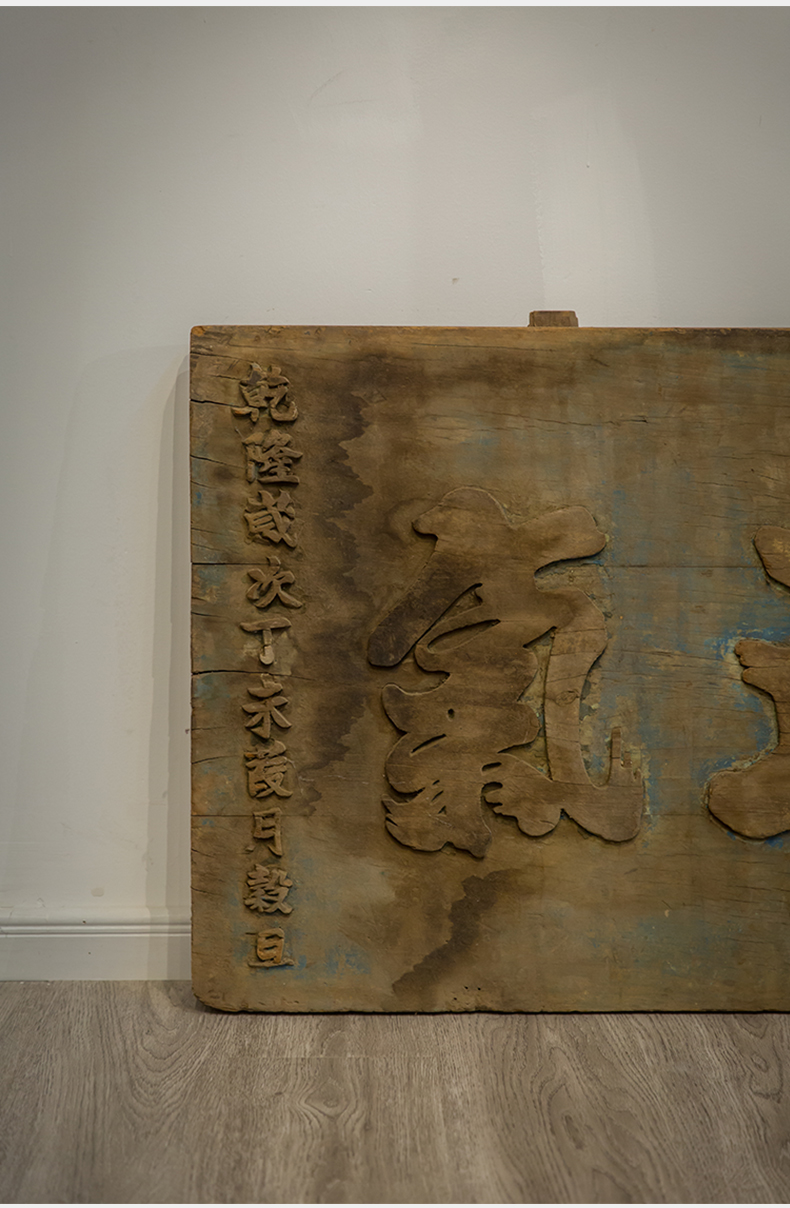 氣
乾隆歲次丁未葭月穀旦